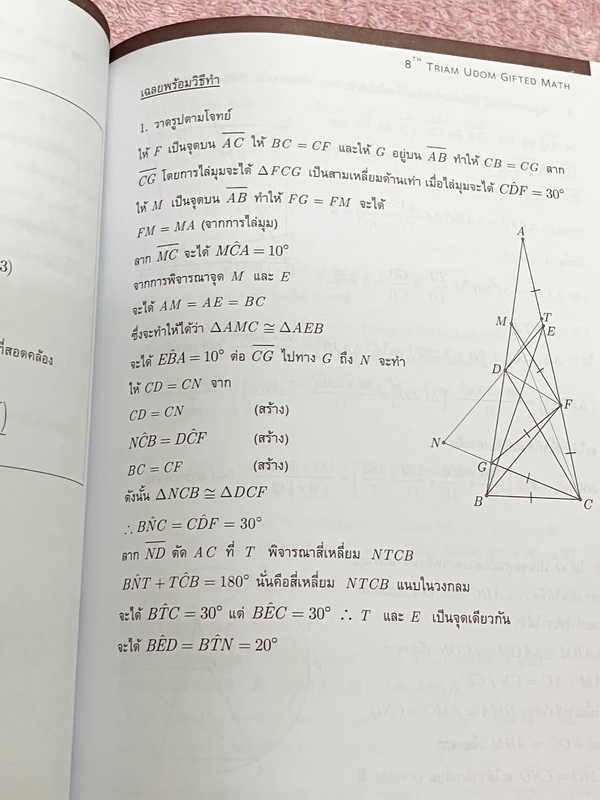 8TH TRIAM UDOM GIFTED MATH
เฉลยพร้อมวิธีทำ
1. วาดรูปตามโจทย์
ให้ F เป็นจุดบน \overline{AC} ให้ BC = CF และให้ G อยู่บน \overline{AB} ทำให้ CB = CG ลาก
\overline{CG} โดยการไล่มุมจะได้ ΔFCG เป็นสามเหลี่ยมด้านเท่า เมื่อไล่มุมจะได้ CD̂F = 30°
ให้ M เป็นจุดบน \overline{AB} ทำให้ FG = FM จะได้
FM = MA (จากการไล่มุม)
ลาก \overline{MC} จะได้ MĈA = 10°
จากการพิจารณาจุด M และ E
จะได้ AM = AE = BC
ซึ่งจะทำให้ได้ว่า ΔAMC ≅ ΔAEB
จะได้ EB̂A = 10° ต่อ \overline{CG} ไปทาง G ถึง N จะทำ
ให้ CD = CN จาก
CD = CN (สร้าง)
NĈB = DĈF (สร้าง)
BC = CF (สร้าง)
ดังนั้น ΔNCB ≅ ΔDCF
∴ BN̂C = CD̂F = 30°
ลาก \overline{ND} ตัด AC ที่ T พิจารณาสี่เหลี่ยม NTCB
BN̂T + TĈB = 180° นั่นคือสี่เหลี่ยม NTCB แนบในวงกลม
จะได้ BT̂C = 30° แต่ BÊC = 30° ∴ T และ E เป็นจุดเดียวกัน
จะได้ BÊD = BT̂N = 20°
A
M
T
E
D
F
N
G
B
C
3)
ที่สอดคล้อง